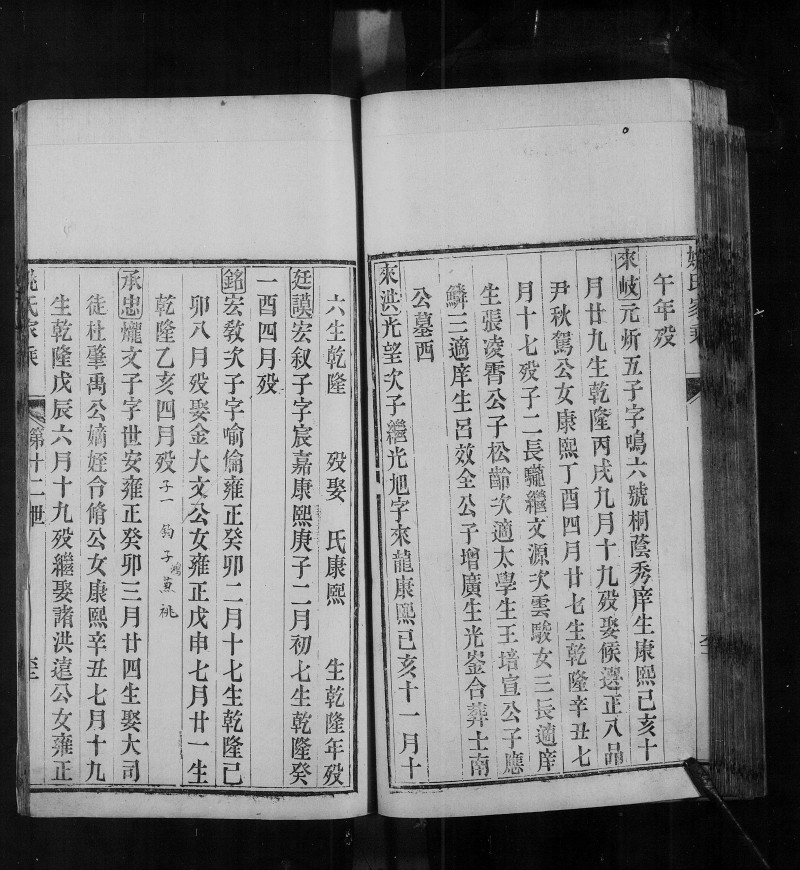 午年殁
來岐元炘五子字鳴六號桐蔭秀庠生康熙己亥十
月廿九生乾隆丙戌九月十九殁娶候選正八品
尹秋駕公女康熙丁酉四月廿七生乾隆辛丑七
月十七殁子二長驪繼文源次雲駿女三長適庠
生張凌霄公子松齡次適太學生王培宣公子應
鱗三適庠生呂效全公子增廣生光崟合葬士南
公墓西
來洪光望次子繼光旭字來龍康熙己亥十一月十
六生乾隆 殁娶 氏康熙 生乾隆年殁
廷謨宏叙子字宸嘉康熙庚子二月初七生乾隆癸
一酉四月殁
銘宏敎次子字喻倫雍正癸卯二月十七生乾隆己
卯八月殁娶金大文公女雍正戊申七月廿一生
乾隆乙亥四月殁子一 鈞子鴻薫祧
承忠爖文子字世安雍正癸卯三月廿四生娶大司
徒杜肇禹公嫡姪合脩公女康熙辛丑七月十九
生乾隆戊辰六月十九殁繼娶諸洪遠公女雍正
姚氏家乘
第十二世